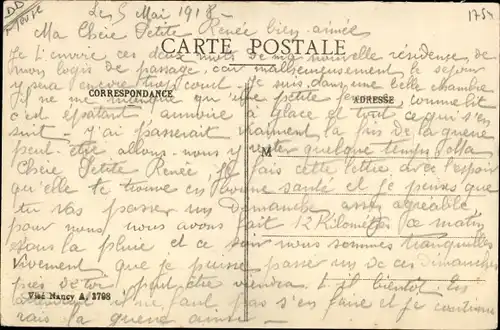 Le 5 Mai 1918
1754
Ma Chère Petite Renée bien-aimée
CARTE POSTALE
Je t'envoie ces deux mots de ma nouvelle résidence, de
mon logis de passage, car malheureusement le séjour
y sera encore court. Je suis dans une belle chambre
CORRESPONDANCE
ADRESSE
Il ne me manque qu'une petite
c'est épatant, armoire à glace et tout ce qui s'en
suit - j'ai passerait vraiment la fin de la guerre
peut-être allons-nous y rester quelque temps. Ma
M
Chère Petite Renée, je fais cette lettre avec l'espoir
qu'elle te trouve en bonne santé et je pense que
tu vas passer un Dimanche assez agréable
pour nous, nous avons fait 12 Kilomètres ce matin
sous la pluie et ce soir nous sommes tranquilles
Vivement que je puisse passer un de ces dimanches
près de toi peut-être viendra t-il bientôt. En
Visé Nancy A. 3798
attendant il ne faut pas s'en faire et je continue
la guerre ainsi